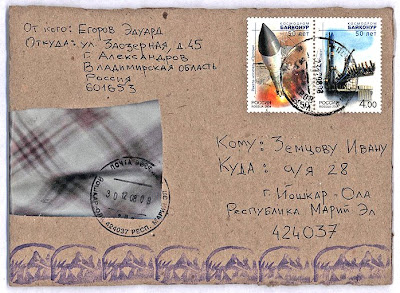 От кого: Егоров Эдуард
Откуда: ул. Заозерная, д.45
г. Александров
Владимирская область
Россия
601653
КОСМОДРОМ
БАЙКОНУР
50 лет
РОССИЯ
КОСМОДРОМ
БАЙКОНУР
50 лет
РОССИЯ
4.00
ПОЧТА
30 12 08 09
424037 РЕСП. МАРИЙ ЭЛ
Кому: Земцову Ивану
Куда: а/я 28
г. Йошкар-Ола
Республика Марий Эл
424037